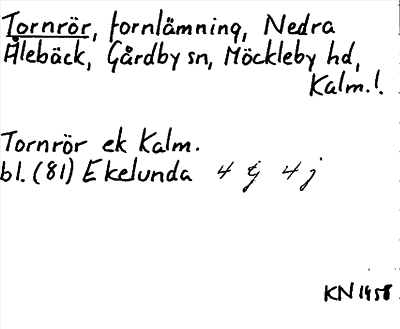 Tornrör, fornlämning, Nedra
Ålebäck, Gårdby sn, Möckleby hd,
Kalm. l.
Tornrör ek Kalm.
bl. (81) Ekelunda 4 G 4 j
KN 1958